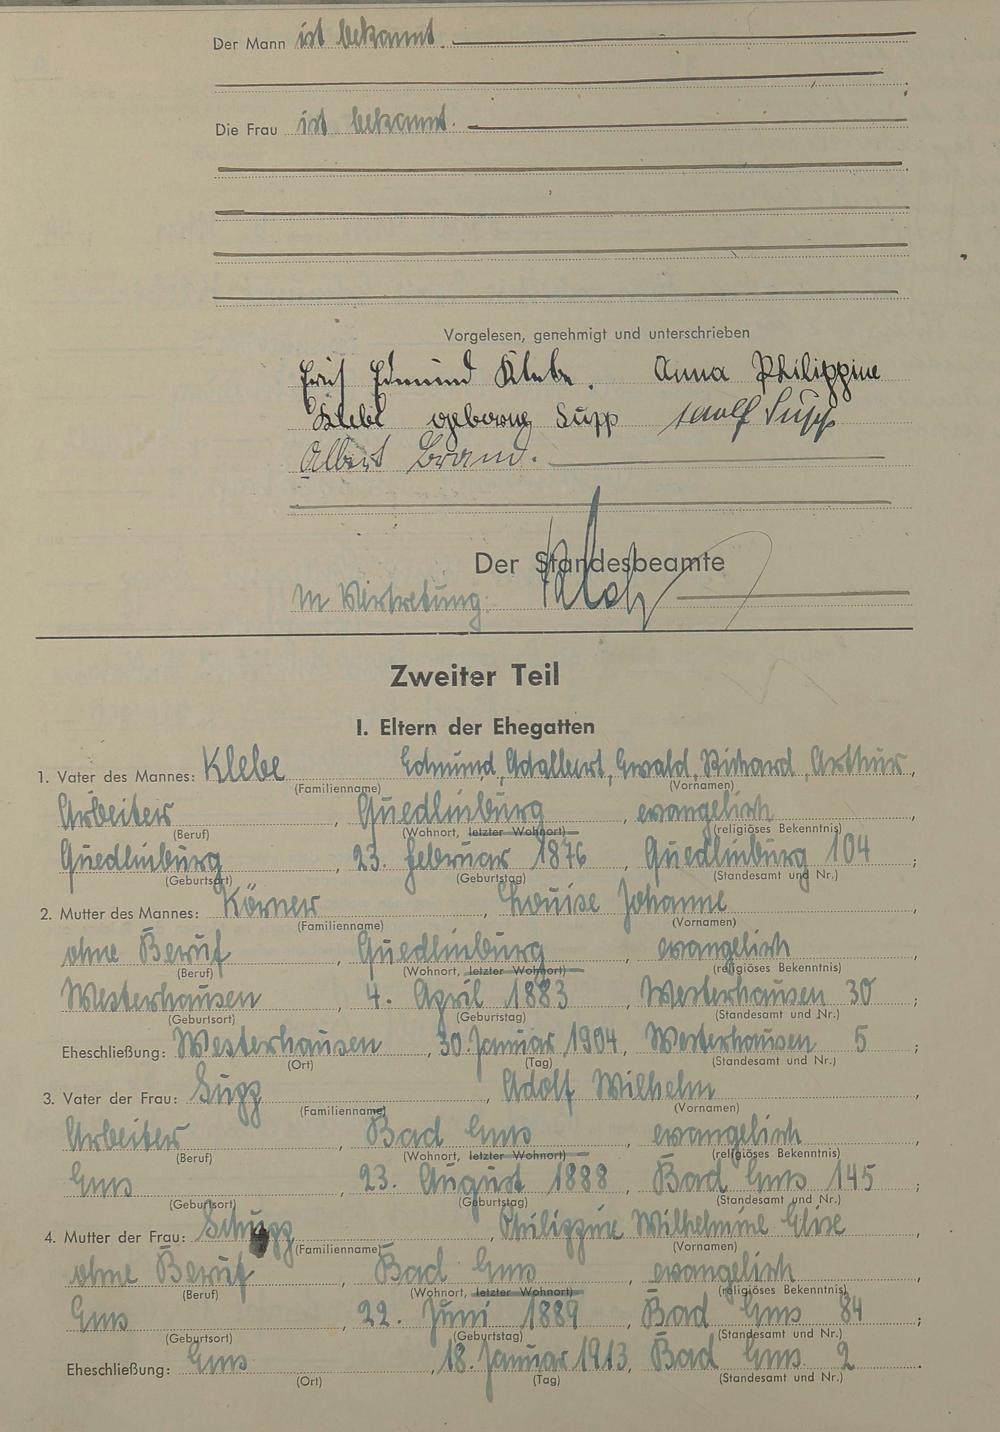 Der Mann ist bekannt.
Die Frau ist bekannt.
Vorgelesen, genehmigt und unterschrieben
Erich Edmund Klebe. Anna Philippine
Klebe geborne Supp Adolf Supp
Albert Brand.
Der Standesbeamte
In Vertretung
Zweiter Teil
I. Eltern der Ehegatten
1. Vater des Mannes: Klebe Edmund, Adalbert, Ewald, Richard, Arthur,
(Familienname) (Vornamen)
Arbeiter, Quedlinburg, evangelisch,
(Beruf) (Wohnort, letzter Wohnort) (religiöses Bekenntnis)
Quedlinburg, 23. Februar 1876, Quedlinburg 104;
(Geburtsort) (Geburtstag) (Standesamt und Nr.)
2. Mutter des Mannes: Körner, Louise Johanne,
(Familienname) (Vornamen)
ohne Beruf, Quedlinburg, evangelisch,
(Beruf) (Wohnort, letzter Wohnort) (religiöses Bekenntnis)
Westerhausen, 4. April 1883, Westerhausen 30;
(Geburtsort) (Geburtstag) (Standesamt und Nr.)
Eheschließung: Westerhausen, 30. Januar 1904, Westerhausen 5;
(Ort) (Tag) (Standesamt und Nr.)
3. Vater der Frau: Supp, Adolf Wilhelm,
(Familienname) (Vornamen)
Arbeiter, Bad Ems, evangelisch,
(Beruf) (Wohnort, letzter Wohnort) (religiöses Bekenntnis)
Ems, 23. August 1888, Bad Ems 145;
(Geburtsort) (Geburtstag) (Standesamt und Nr.)
4. Mutter der Frau: Schupp, Philippine Wilhelmine Elise,
(Familienname) (Vornamen)
ohne Beruf, Bad Ems, evangelisch,
(Beruf) (Wohnort, letzter Wohnort) (religiöses Bekenntnis)
Ems, 22. Juni 1889, Bad Ems 84;
(Geburtsort) (Geburtstag) (Standesamt und Nr.)
Eheschließung: Ems, 18. Januar 1913, Bad Ems 2.
(Ort) (Tag) (Standesamt und Nr.)